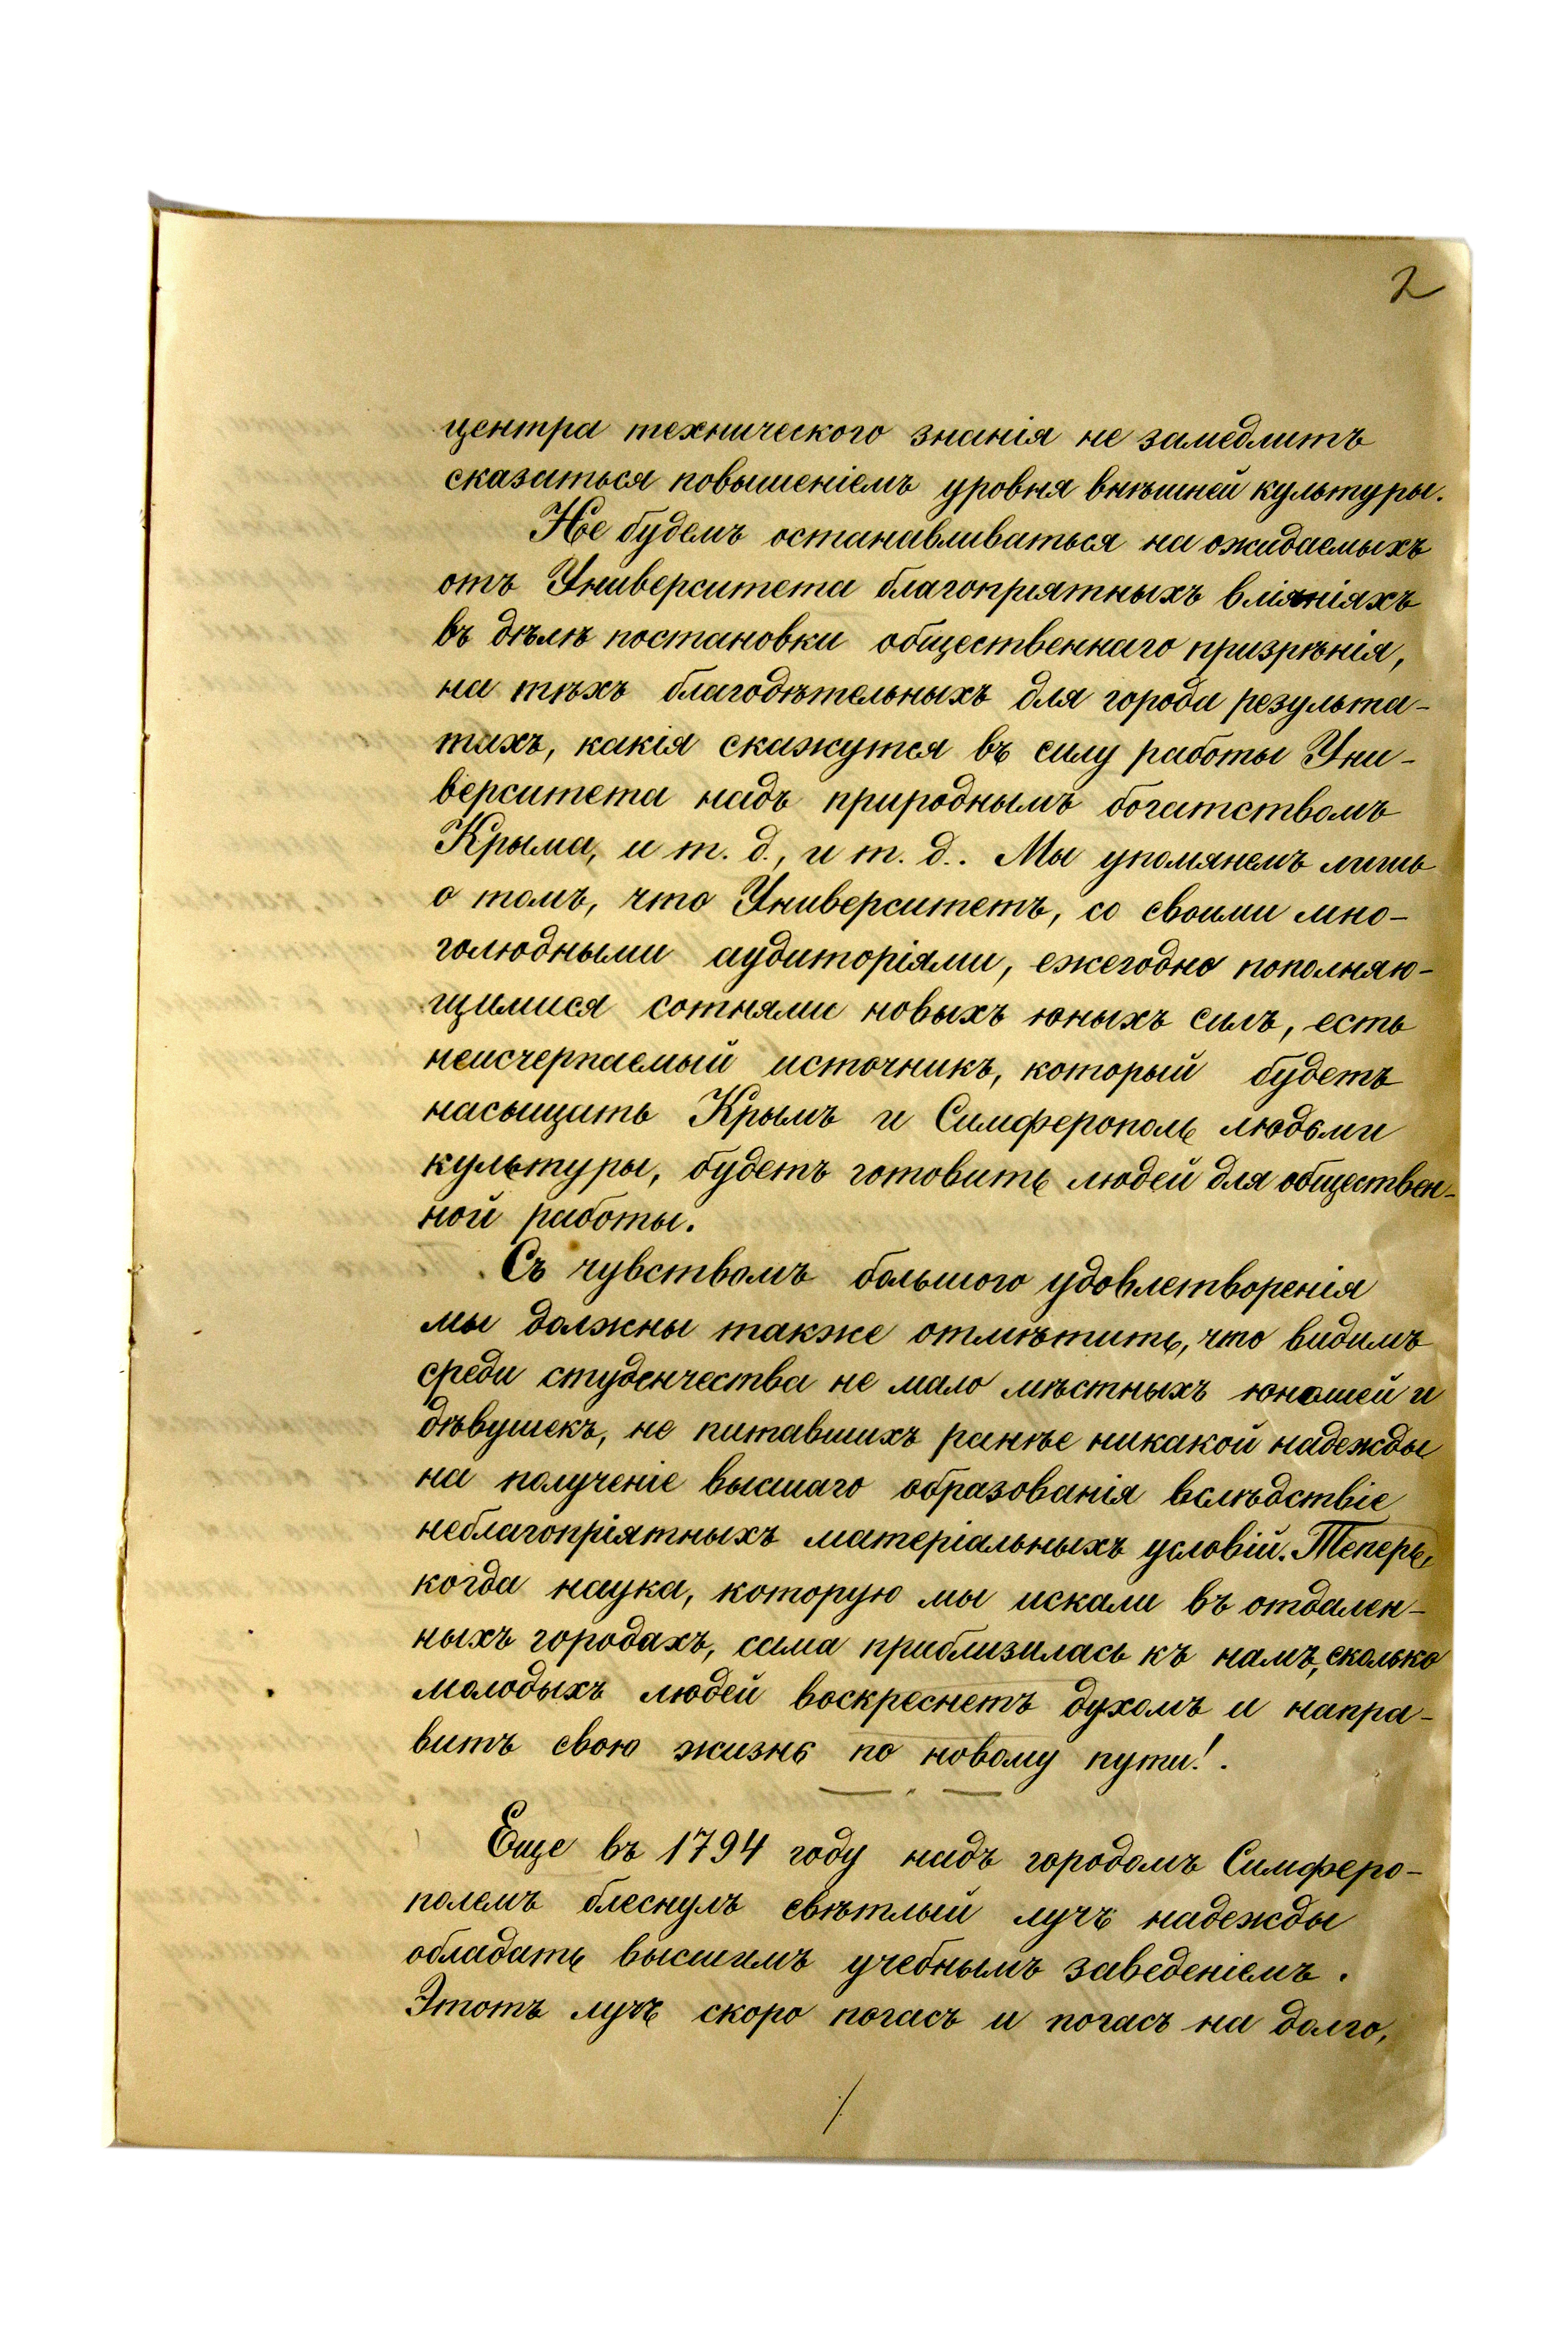 2
центра техническаго знанія не замедлитъ
сказаться повышеніемъ уровня внѣшней культуры.
Не будемъ останавливаться на ожидаемыхъ
отъ Университета благопріятныхъ вліяніяхъ
въ дѣлѣ постановки общественнаго призрѣнія,
на тѣхъ благодѣтельныхъ для города результа-
тахъ, какія скажутся въ силу работы Уни-
верситета надъ природнымъ богатствомъ
Крыма, и т. д., и т. д.. Мы упомянемъ лишь
о томъ, что Университетъ, со своими мно-
голюдными аудиторіями, ежегодно пополняю-
щимися сотнями новыхъ юныхъ силъ, есть
неисчерпаемый источникъ, который будетъ
насыщать Крымъ и Симферополь людьми
культуры, будетъ готовить людей для обществен-
ной работы.
Съ чувствомъ большого удовлетворенія
мы должны также отмѣтить, что видимъ
среди студенчества не мало мѣстныхъ юношей и
дѣвушекъ, не питавшихъ ранѣе никакой надежды
на полученіе высшаго образованія вслѣдствіе
неблагопріятныхъ матеріальныхъ условій. Теперь,
когда наука, которую мы искали въ отдален-
ныхъ городахъ, сама приблизилась къ намъ, сколько
молодыхъ людей воскреснетъ духомъ и напра-
витъ свою жизнь по новому пути!.
Еще въ 1794 году надъ городомъ Симферо-
полемъ блеснулъ свѣтлый лучъ надежды
обладать высшимъ учебнымъ заведеніемъ.
Этотъ лучъ скоро погасъ и погасъ на долго,